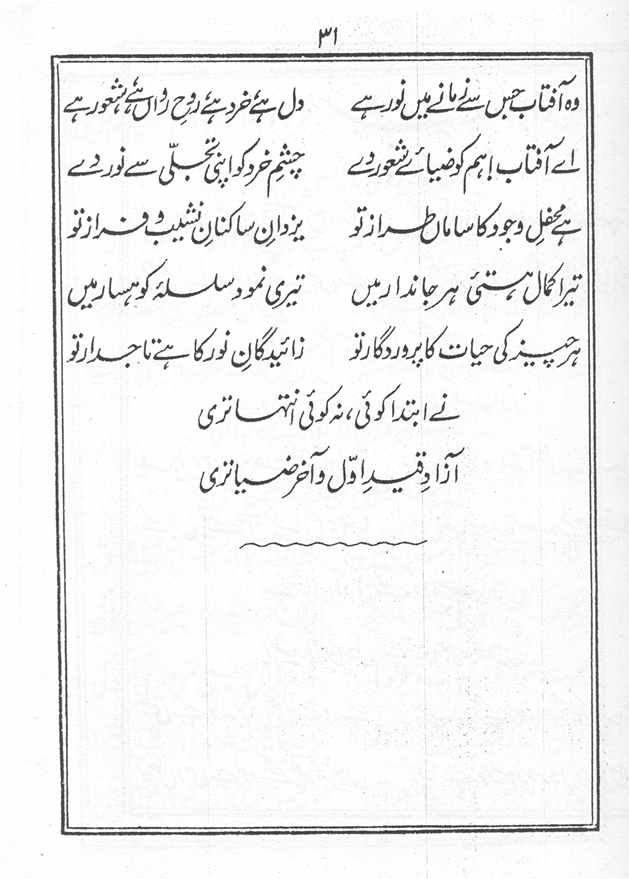 ۳۱
وہ آفتاب جس سے زمانے میں نور ہے دل ہے خرد ہے روحِ رواں ہے شعور ہے
اے آفتاب! ہم کو ضیائے شعور دے چشمِ خرد کو اپنی تجلّی سے نور دے
ہے محفلِ وجود کا ساماں طراز تو یزدانِ ساکنانِ نشیب و فراز تو
تیرا کمال ہستیٔ ہر جاندار میں تیری نمود سلسلۂ کوہسار میں
ہر چیز کی حیات کا پروردگار تو زائیدگانِ نور کا ہے تاجدار تو
نے ابتدا کوئی، نہ کوئی انتہا تری
آزادِ قیدِ اوّل و آخر ضیا تری